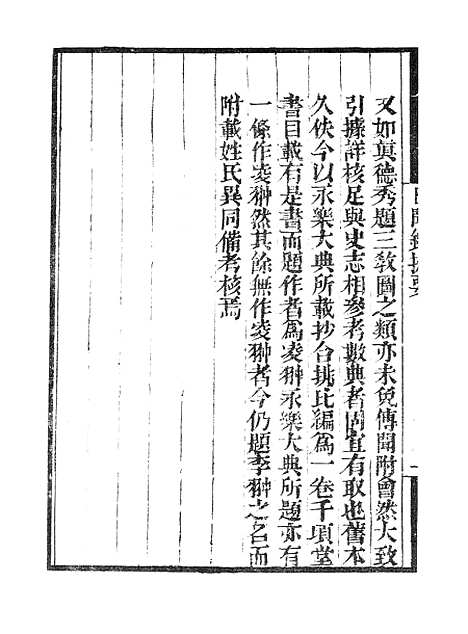 又如真德秀題三敎圖之類亦未免傳聞附會然大致
引據詳核足與史志相參考數典者固宜有取也舊本
久佚今以永樂大典所載抄合排比編爲一卷千頃堂
書目載有是書而題作者爲凌翀永樂大典所題亦有
一條作凌翀然其餘無作凌翀者今仍題李翀之名而
附載姓氏異同備考核焉
日聞錄提要